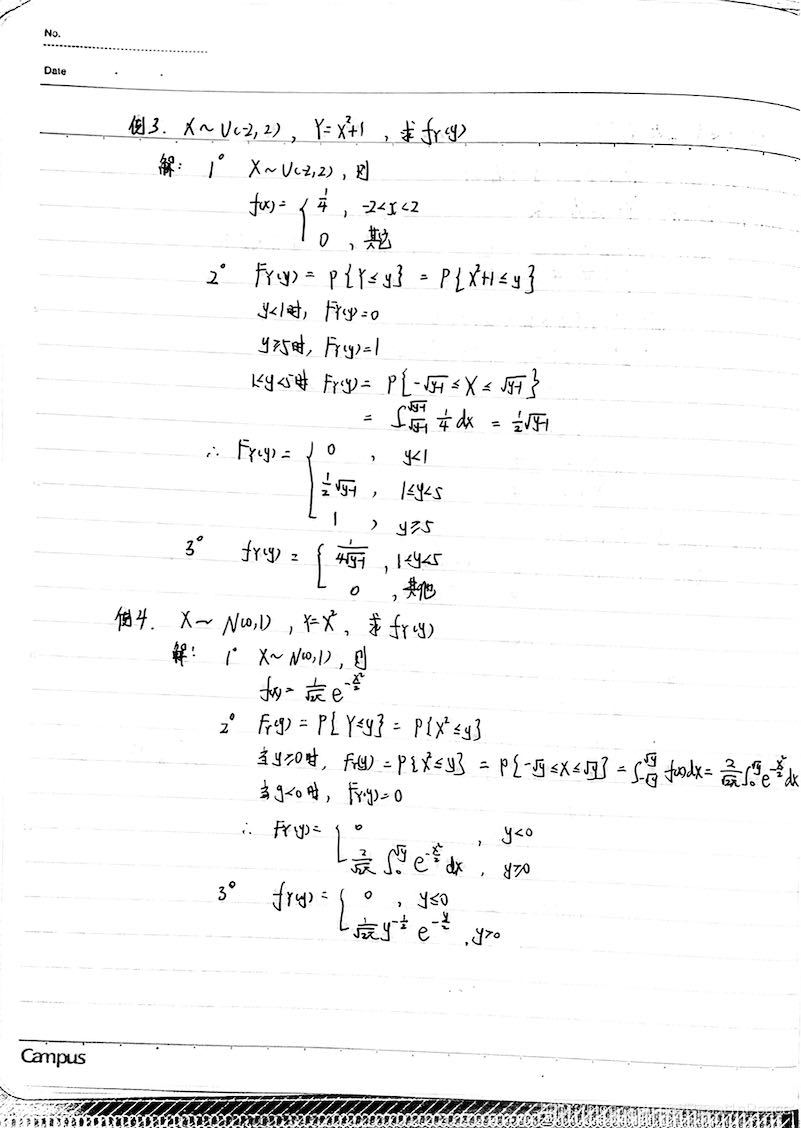 No.
Date
例3. X~U(-2,2), Y=X²+1, 求 f_Y(y)
解: 1° X~U(-2,2), 则
f(x)= { 1/4, -2<x<2
0, 其它
2° F_Y(y) = P{Y≤y} = P{X²+1≤y}
y<1时, F_Y(y)=0
y≥5时, F_Y(y)=1
1≤y<5时 F_Y(y)= P{-√(y-1) ≤ X ≤ √(y-1)}
= ∫_{√(y-1)}^{√(y-1)} 1/4 dx = 1/2 √(y-1)
∴ F_Y(y)= { 0, y<1
1/2 √(y-1), 1≤y<5
1, y≥5
3° f_Y(y) = { 1/(4√(y-1)), 1<y<5
0, 其他
例4. X~N(0,1), Y=X², 求 f_Y(y)
解: 1° X~N(0,1), 则
f(x)= 1/√(2π) e^{-x²/2}
2° F_Y(y) = P{Y≤y} = P{X²≤y}
当y≥0时, F_Y(y) = P{X²≤y} = P{-√y≤X≤√y} = ∫_{-√y}^{√y} f(x)dx = 2/√(2π) ∫_0^{√y} e^{-x²/2} dx
当y<0时, F_Y(y)=0
∴ F_Y(y)= { 0, y<0
2/√(2π) ∫_0^{√y} e^{-x²/2} dx, y≥0
3° f_Y(y) = { 0, y≤0
1/√(2π) y^{-1/2} e^{-y/2}, y>0
Campus